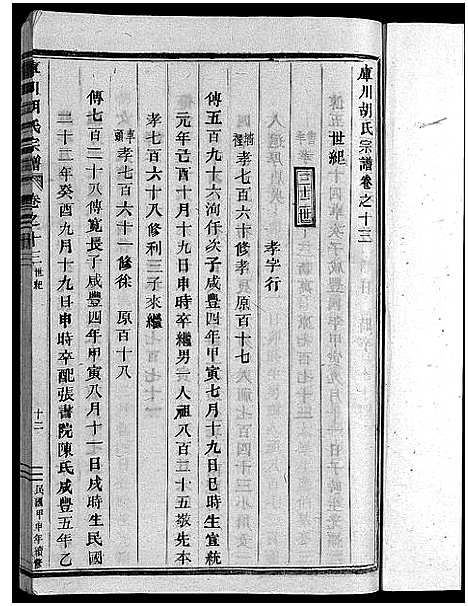 庫川胡氏宗譜卷之十三
世紀
三十世
孝字行
孝七百六十修孝 原百十七
傳五百九十六洵仟次子咸豐四年甲寅七月十九日申時生宣統
元年己酉十月十九日申時卒繼男一人祖八百三十五敬先本
孝七百六十八修利三子來繼
孝七百六十一修徐 原百十八
傳七百二十八傳寬長子咸豐四年甲寅八月十一日戌時生民國
二十二年癸酉九月十九日申時卒配張書院陳氏咸豐五年乙
庫川胡氏宗譜 卷之十三 世紀 十二 民國甲申年續修